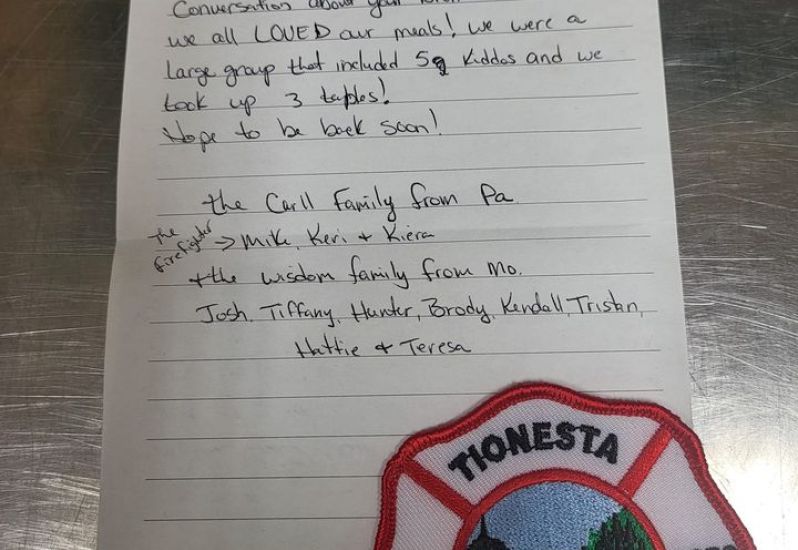 Conversation about your
we all LOVED our meals! we were a
large group that included 5 kiddos and we
took up 3 tables!
Hope to be back soon!
the Carll Family from Pa.
the firefighter → Mike, Keri + Kiera
+ the wisdom family from Mo.
Josh, Tiffany, Hunter, Brody, Kendall, Tristan,
Hattie + Teresa
TIONESTA